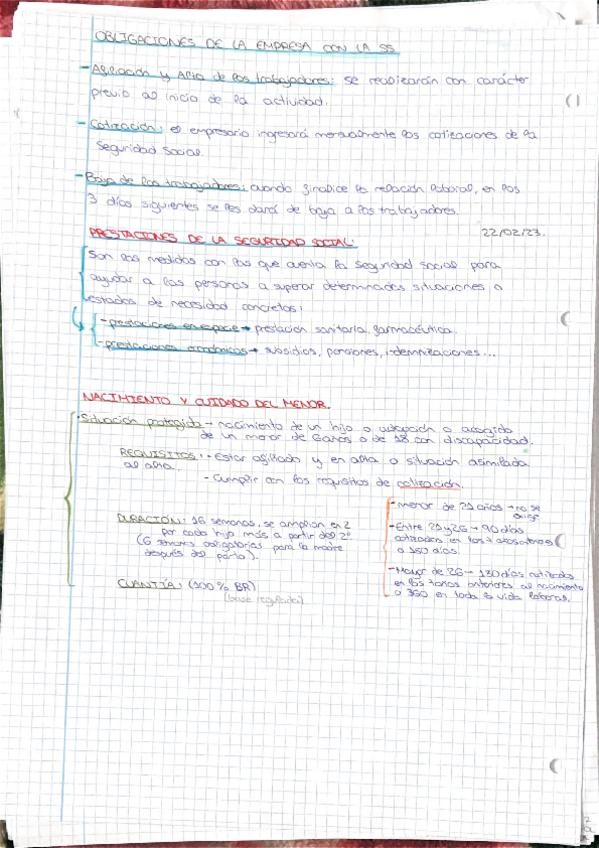 OBLIGACIONES DE LA EMPRESA CON LA SS.
- Afiliación y Alta de los trabajadores: se realizarán con carácter
previo al inicio de la actividad.
- Cotización: el empresario ingresará mensualmente las cotizaciones de la
Seguridad Social.
- Baja de los trabajadores: cuando finalice la relación laboral, en los
3 días siguientes se les dará de baja a los trabajadores.
PRESTACIONES DE LA SEGURIDAD SOCIAL:
22/02/23.
Son las medidas con las que cuenta la seguridad social para
ayudar a las personas a superar determinadas situaciones o
estados de necesidad concretos:
- prestaciones en especie → prestación sanitaria, farmacéutica.
- prestaciones económicas → subsidios, pensiones, indemnizaciones...
NACIMIENTO Y CUIDADO DEL MENOR.
· Situación protegida → nacimiento de un hijo o adopción o acogida
de un menor de 6 años o de 18 con discapacidad.
REQUISITOS: - Estar afiliado y en alta o situación asimilada
al alta.
- Cumplir con los requisitos de cotización.
- menor de 21 años → no se
exige
- Entre 21 y 26 → 90 días
cotizados en los 7 años anteriores
o 180 días.
- Mayor de 26 → 180 días cotizados
en los 7 años anteriores al nacimiento
o 360 en toda la vida laboral.
DURACIÓN: 16 semanas, se amplían en 2
por cada hijo más a partir del 2º
(6 semanas obligatorias para la madre
después del parto).
CUANTÍA: (100% BR)
(base reguladora)